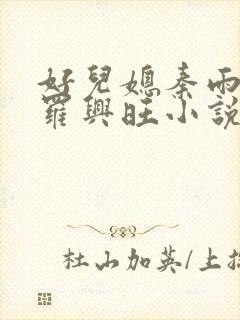 好兒媳秦雨
羅興旺小說
杜山加英/上